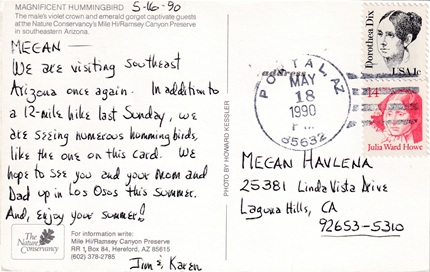 MAGNIFICENT HUMMINGBIRD
5-16-90
The male's violet crown and emerald gorget captivate guests
at the Nature Conservancy's Mile Hi/Ramsey Canyon Preserve
in southeastern Arizona.
MEGAN—
We are visiting southeast
Arizona once again. In addition to
a 12-mile hike last Sunday, we
are seeing numerous hummingbirds,
like the one on this card. We
hope to see you and your mom and
Dad up in Los Osos this summer.
And, enjoy your summer!
Jim & Karen
The
Nature
Conservancy
For information write:
Mile Hi/Ramsey Canyon Preserve
RR 1, Box 84, Hereford, AZ 85615
(602) 378-2785
PHOTO BY HOWARD KESSLER
address
PORTAL, AZ
MAY
18
1990
85632
Dorothea Dix
USA 1c
14¢
Julia Ward Howe
MEGAN HAVLENA
25381 Linda Vista Drive
Laguna Hills, CA
92653-5310